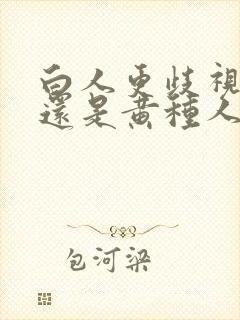 白人更歧視
還是黃種人
包河梁